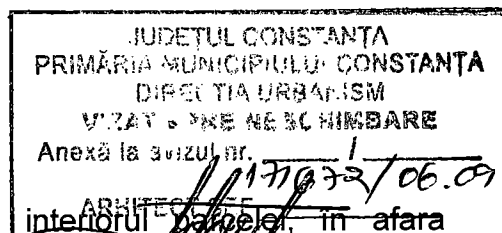 JUDEȚUL CONSTANȚA
PRIMĂRIA MUNICIPIULUI CONSTANȚA
DIRECȚIA URBANISM
VIZAT SPRE NESCHIMBARE
Anexă la avizul nr.
/06.09
interiorul parcelei, în afara